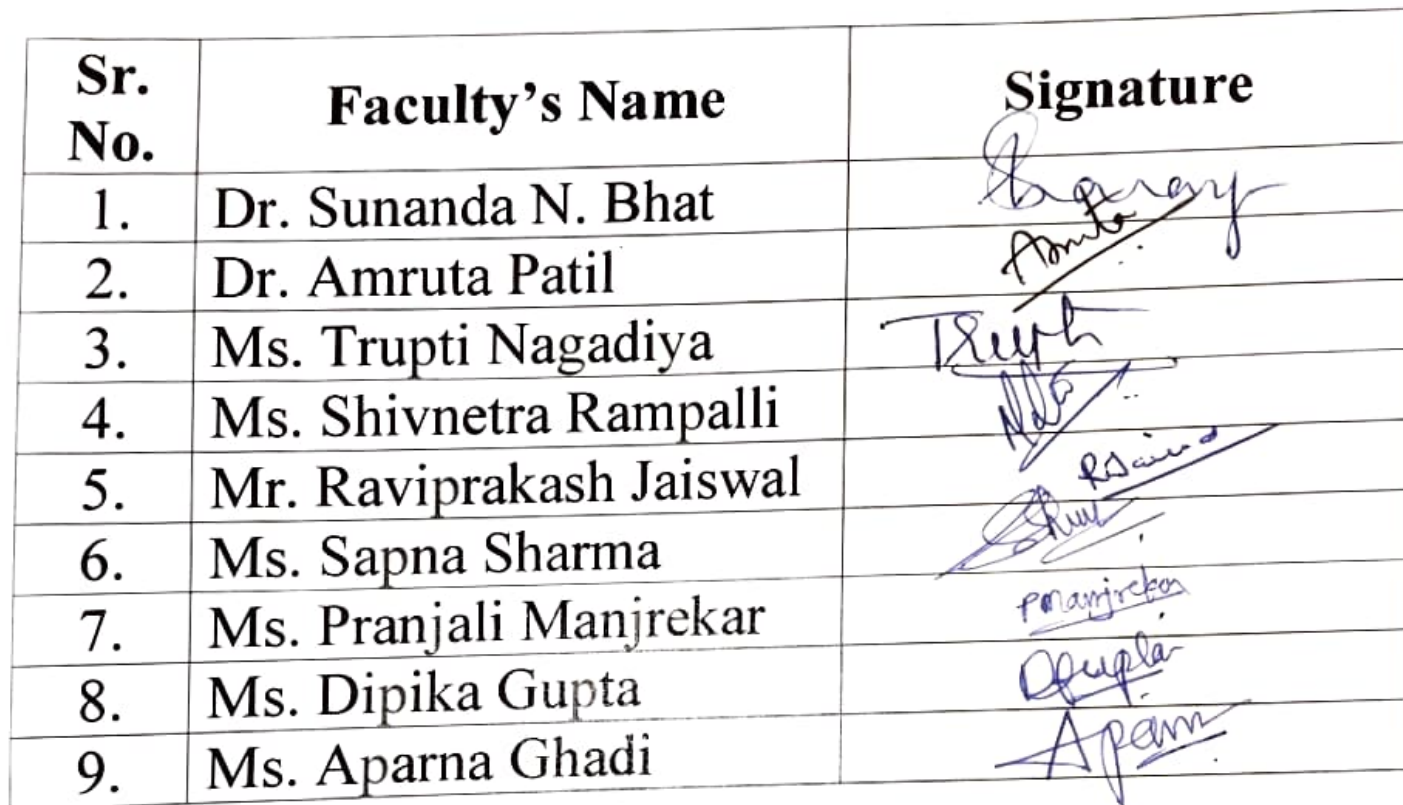 Sr. No. Faculty's Name Signature
1. Dr. Sunanda N. Bhat
2. Dr. Amruta Patil Amruta
3. Ms. Trupti Nagadiya Trupti
4. Ms. Shivnetra Rampalli
5. Mr. Raviprakash Jaiswal
6. Ms. Sapna Sharma
7. Ms. Pranjali Manjrekar PManjrekar
8. Ms. Dipika Gupta DGupta
9. Ms. Aparna Ghadi Aparn